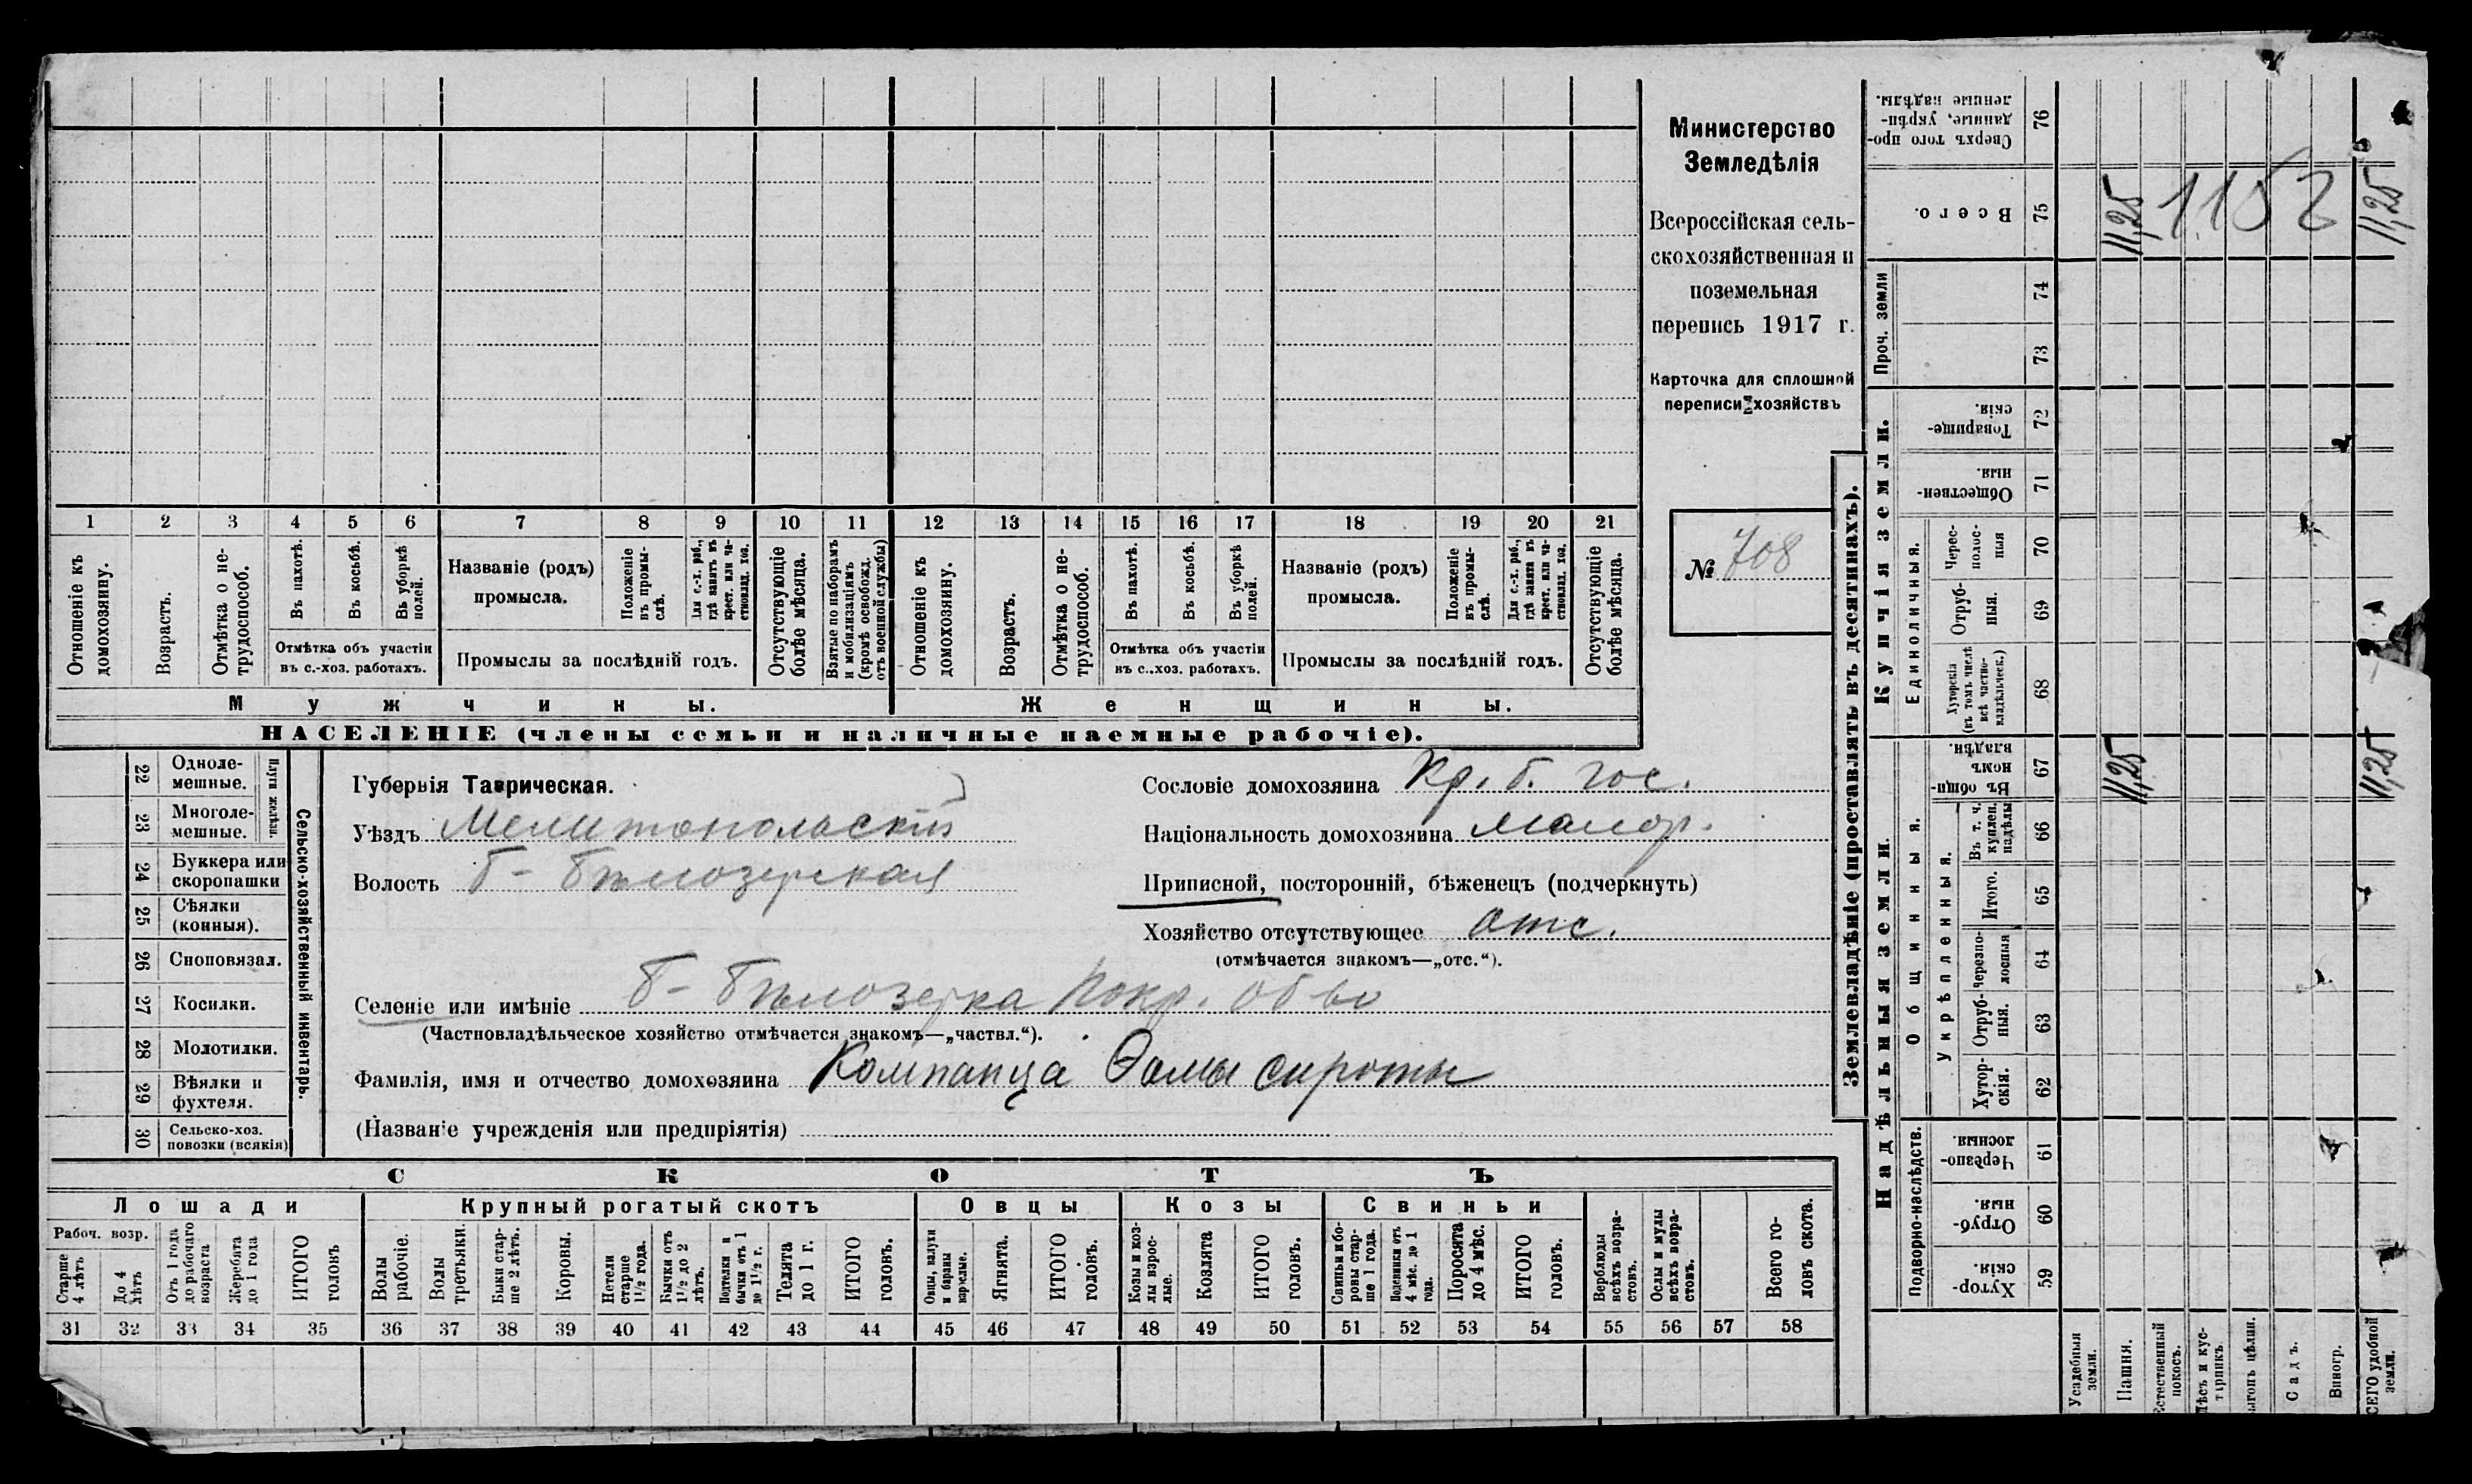 Министерство
Земледѣлія
Всероссійская сель-
скохозяйственная и
поземельная
перепись 1917 г.
Карточка для сплошной
переписи хозяйствъ
№ 708
1 2 3 4 5 6 7 8 9 10 11 12 13 14 15 16 17 18 19 20 21
Отношеніе къ
домохозяину.
Возрастъ.
Отмѣтка о не-
трудоспособ.
Въ пахотѣ.
Въ косьбѣ.
Въ уборкѣ
полей.
Отмѣтка объ участіи
въ с.-хоз. работахъ.
Названіе (родъ)
промысла.
Положеніе
въ промы-
слѣ.
Для с.-х. раб.,
гдѣ занятъ въ
крест. или ча-
стновлад. хоз.
Промыслы за послѣдній годъ.
Отсутствующіе
болѣе мѣсяца.
Взятые по наборамъ
и мобилизаціямъ
(кромѣ освобожд.
отъ военной службы)
Отношеніе къ
домохозяину.
Возрастъ.
Отмѣтка о не-
трудоспособ.
Въ пахотѣ.
Въ косьбѣ.
Въ уборкѣ
полей.
Отмѣтка объ участіи
въ с..хоз. работахъ.
Названіе (родъ)
промысла.
Положеніе
въ промы-
слѣ.
Для с.-х. раб.,
гдѣ занята въ
крест. или ча-
стновлад. хоз.
Промыслы за послѣдній годъ.
Отсутствующіе
болѣе мѣсяца.
Мужчины.
Женщины.
НАСЕЛЕНІЕ (члены семьи и наличные наемные рабочіе).
22 Одноле-
мешные.
23 Многоле-
мешные.
Плуги желѣзн.
24 Буккера или
скоропашки
25 Сѣялки
(конныя).
26 Сноповязал.
27 Косилки.
28 Молотилки.
29 Вѣялки и
фухтеля.
30 Сельско-хоз.
повозки (всякія)
Сельско-хозяйственный инвентарь.
Губернія Таврическая.
Уѣздъ Мелитопольскій
Волость Б-Бѣлозерская
Сословіе домохозяина Кр. б. гос.
Національность домохозяина малор.
Приписной, посторонній, бѣженецъ (подчеркнуть)
Хозяйство отсутствующее отс.
(отмѣчается знакомъ—„отс.“).
Селеніе или имѣніе Б-Бѣлозерка Покр. об-во
(Частновладѣльческое хозяйство отмѣчается знакомъ—„частвл.“).
Фамилія, имя и отчество домохозяина Компанца Ѳомы сироты
(Названіе учрежденія или предпріятія)
СКОТЪ
Лошади
Крупный рогатый скотъ
Овцы
Козы
Свиньи
Рабоч. возр.
Старше
4 лѣтъ
До 4
лѣтъ
Отъ 1 года
до рабочаго
возраста
Жеребята
до 1 года
ИТОГО
головъ
Волы
рабочіе.
Волы
третьяки.
Быки стар-
ше 2 лѣтъ.
Коровы.
Нетели
старше
1½ года.
Бычки отъ
1½ до 2
лѣтъ.
Подтелки и
бычки отъ 1
до 1½ г.
Телята
до 1 г.
ИТОГО
головъ.
Овцы, валухи
и бараны
взрослые.
Ягнята.
ИТОГО
головъ.
Козы и коз-
лы взрос-
лые.
Козлята
ИТОГО
головъ.
Свиньи и бо-
ровы стар-
ше 1 года.
Подсвинки отъ
4 мѣс. до 1
года.
Поросята
до 4 мѣс.
ИТОГО
головъ.
Верблюды
всѣхъ возра-
стовъ.
Ослы и мулы
всѣхъ возра-
стовъ.
Всего го-
ловъ скота.
31 32 33 34 35 36 37 38 39 40 41 42 43 44 45 46 47 48 49 50 51 52 53 54 55 56 57 58
Землевладѣніе (проставлять въ десятинахъ).
Надѣльныя земли.
Купчія земли.
Проч. земли
Подворно-наслѣдств.
Общинныя.
Укрѣпленныя.
Единоличныя.
Хутор-
скія.
59
Отруб-
ныя.
60
Черезпо-
лосныя.
61
Хутор-
скія.
62
Отруб-
ныя.
63
Черезпо-
лосныя
64
Итого.
65
Въ т. ч.
куплен.
надѣлы
66
Въ общин-
номъ
владѣн.
67 11,25 11,25
Хуторскія
(въ томъ числѣ
всѣ частно-
владѣльческ.)
68
Отруб-
ныя.
69
Черес-
полос-
ныя
70
Обществен-
ныя.
71
Товарище-
скія.
72
73
74
Всего.
75 11,25 1152 11,25
Сверхъ того про-
данные, укрѣп-
ленные надѣлы.
76
Усадебныя
земли.
Пашня.
Естественный
покосъ.
Лѣсъ и кус-
тарникъ.
Садъ.
Виногр.
СЕГО удобной
земли.